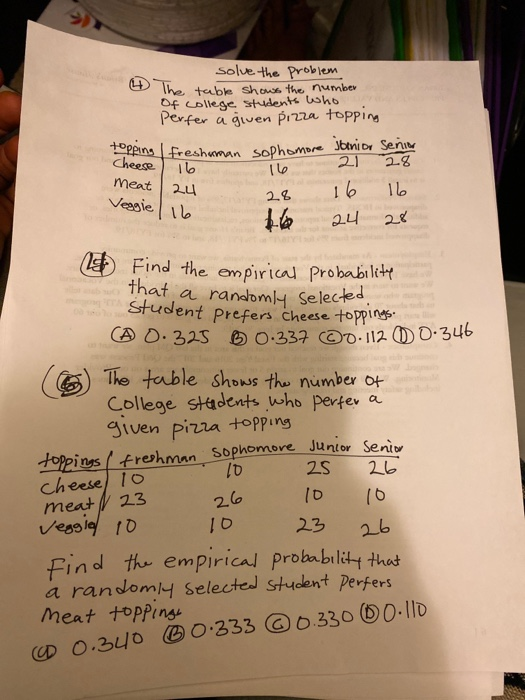 Solve the Problem
④ The table shows the number
Of College students who
Perfer a given pizza topping
topping freshman sophomore Jonior Senior
Cheese 16 16 21 28
Meat 24 28 16 16
Veggie 16 16 24 28
Find the empirical Probability
that a randomly selected
Student prefers cheese toppings.
Ⓐ 0.325 Ⓑ 0.337 Ⓒ 0.112 Ⓓ 0.346
The table shows the number of
College students who perfer a
given pizza topping
toppings freshman sophomore Junior Senior
cheese 10 10 25 26
meat 23 26 10 10
Veggie 10 10 23 26
Find the empirical probability that
a randomly selected student perfers
Meat toppings
0.340 Ⓑ 0.333 Ⓒ 0.330 Ⓓ 0.110